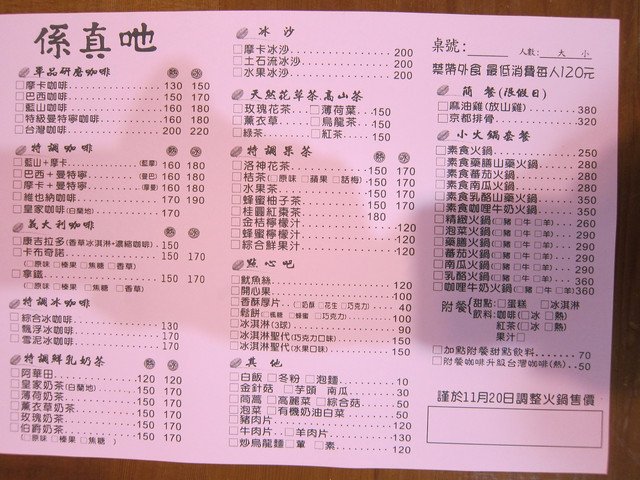 係真吔
單品研磨咖啡 熱 冰
□摩卡咖啡 130 150
□巴西咖啡 150 170
□藍山咖啡 160 180
□特級曼特寧咖啡 160 180
□台灣咖啡 200 220
特調咖啡 熱 冰
□藍山+摩卡 (藍摩) 160 180
□巴西+曼特寧 (曼巴) 160 180
□摩卡+曼特寧 (摩曼) 160 180
□維也納咖啡 170 190
□皇家咖啡(白蘭地) 170
義大利咖啡
□康吉拉多(香草冰淇淋+濃縮咖啡) 150
□卡布奇諾 150 170
(□原味 □榛果 □焦糖 □香草)
□拿鐵 150 170
(□原味 □榛果 □焦糖 □香草)
特調冰咖啡
□綜合冰咖啡 130
□飄浮冰咖啡 170
□雪泥冰咖啡 170
特調鮮乳奶茶 熱 冰
□阿華田 120 120
□皇家奶茶(白蘭地) 150 170
□薄荷奶茶 150 170
□薰衣草奶茶 150 170
□玫瑰奶茶 150 170
□伯爵奶茶 150 170
(□原味 □榛果 □焦糖)
冰沙
□摩卡冰沙 200
□土石流冰沙 200
□水果冰沙 200
天然花草茶.高山茶
□玫瑰花茶 □薄荷葉 150
□薰衣草 □烏龍茶 150
□綠茶 □紅茶 150
特調果茶 熱 冰
□洛神花茶 150 170
□桔茶(□原味 □蘋果 □話梅) 150 170
□水果茶 150 170
□蜂蜜柚子茶 150 170
□桂圓紅棗茶 180
□金桔檸檬汁 120
□蜂蜜檸檬汁 120
□綜合鮮果汁 120
點心吧
□魷魚絲 120
□開心果 100
□香酥厚片(□奶酥 □花生 □巧克力) 40
□鬆餅(□楓糖 □蜂蜜 □巧克力) 100
□冰淇淋(3球) 90
□冰淇淋聖代(巧克力口味) 150
□冰淇淋聖代(水果口味) 150
其他
□白飯 □冬粉 □泡麵 10
□金針菇 □芋頭 □南瓜 30
□茼蒿 □高麗菜 □綜合菇 50
□泡菜 □有機奶油白菜 50
□豬肉片 50
□牛肉片 □羊肉片 130
□炒烏龍麵 □葷 □素 120
桌號:____ 人數: __大__小
禁帶外食 最低消費每人120元
簡餐(限假日)
□麻油雞(放山雞) 380
□京都排骨 320
小火鍋套餐
□素食火鍋 250
□素食藥膳山藥火鍋 280
□素食蕃茄火鍋 280
□素食南瓜火鍋 280
□素食乳酪山藥火鍋 350
□素食咖哩牛奶火鍋 350
□精緻火鍋(□豬 □牛 □羊) 260
□泡菜火鍋(□豬 □牛 □羊) 290
□藥膳火鍋(□豬 □牛 □羊) 290
□蕃茄火鍋(□豬 □牛 □羊) 290
□南瓜火鍋(□豬 □牛 □羊) 290
□乳酪火鍋(□豬 □牛 □羊) 360
□咖哩牛奶火鍋(□豬 □牛 □羊) 360
附餐 甜點:□蛋糕 □冰淇淋
飲料:咖啡(□冰 □熱)
紅茶(□冰 □熱)
果汁□
□加點附餐甜點飲料 70
□附餐咖啡升級台灣咖啡(熱) 50
謹於11月20日調整火鍋售價